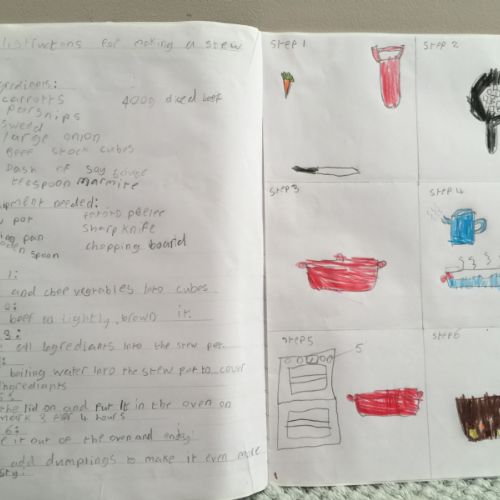 Instructions for making a stew
gredients:
carrotts 400g diced beef
Parsnips
Sweed
large onion
Beef stock cubes
Dash of Soy Sauce
teaspoon Marmite
pment needed:
pot
pan Sharp knife
spoon chopping board
1:
and chop vegtables into cubes
beef to lightly brown it
3
all ingrediants into the stew pot
boiling water into the stew pot to cover
ingrediants
5
the lid on and put it in the oven on
mark 3 for 4 hours
6:
e it out of the oven and enjoy!
add dumplings to make it even more
sty.
Step 1
Step 2
Step 3
Step 4
Step 5
5
Step 6